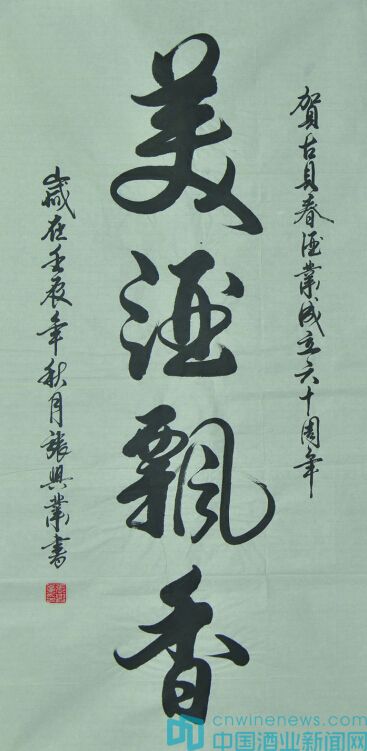 賀古貝春酒業成立六十周年
美酒飄香
歲在壬辰年秋月張興業書
cnwinenews.com
中国酒业新闻网